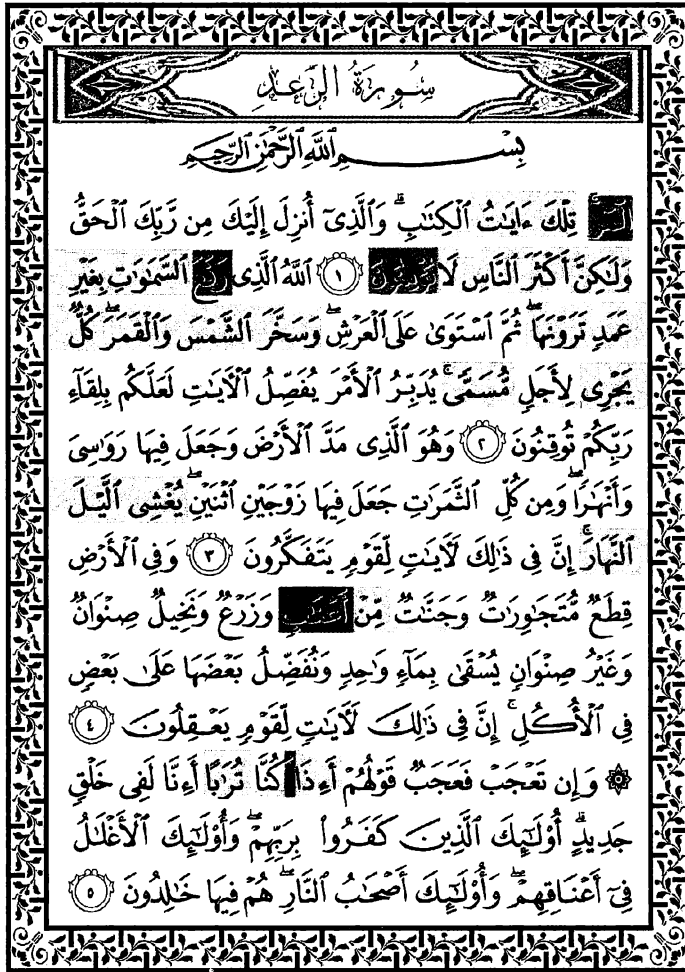 سُورَةُ الرَّعْدِ
بِسْمِ اللَّهِ الرَّحْمَٰنِ الرَّحِيمِ
الٓمٓرۚ تِلْكَ ءَايَٰتُ الْكِتَٰبِۗ وَالَّذِىٓ أُنزِلَ إِلَيْكَ مِن رَّبِّكَ الْحَقُّ
وَلَٰكِنَّ أَكْثَرَ النَّاسِ لَا يُؤْمِنُونَ ١ اللَّهُ الَّذِى رَفَعَ السَّمَٰوَٰتِ بِغَيْرِ
عَمَدٍ تَرَوْنَهَاۖ ثُمَّ اسْتَوَىٰ عَلَى الْعَرْشِۖ وَسَخَّرَ الشَّمْسَ وَالْقَمَرَۖ كُلٌّ
يَجْرِى لِأَجَلٍ مُّسَمًّىۚ يُدَبِّرُ الْأَمْرَ يُفَصِّلُ الْآيَٰتِ لَعَلَّكُم بِلِقَآءِ
رَبِّكُمْ تُوقِنُونَ ٢ وَهُوَ الَّذِى مَدَّ الْأَرْضَ وَجَعَلَ فِيهَا رَوَٰسِىَ
وَأَنْهَٰرًاۖ وَمِن كُلِّ الثَّمَرَٰتِ جَعَلَ فِيهَا زَوْجَيْنِ اثْنَيْنِۖ يُغْشِى الَّيْلَ
النَّهَارَۚ إِنَّ فِى ذَٰلِكَ لَآيَٰتٍ لِّقَوْمٍ يَتَفَكَّرُونَ ٣ وَفِى الْأَرْضِ
قِطَعٌ مُّتَجَٰوِرَٰتٌ وَجَنَّٰتٌ مِّنْ أَعْنَٰبٍ وَزَرْعٌ وَنَخِيلٌ صِنْوَانٌ
وَغَيْرُ صِنْوَانٍ يُسْقَىٰ بِمَآءٍ وَٰحِدٍ وَنُفَضِّلُ بَعْضَهَا عَلَىٰ بَعْضٍ
فِى الْأُكُلِۚ إِنَّ فِى ذَٰلِكَ لَآيَٰتٍ لِّقَوْمٍ يَعْقِلُونَ ٤
۞ وَإِن تَعْجَبْ فَعَجَبٌ قَوْلُهُمْ أَءِذَا كُنَّا تُرَٰبًا أَءِنَّا لَفِى خَلْقٍ
جَدِيدٍۗ أُو۟لَٰٓئِكَ الَّذِينَ كَفَرُوا۟ بِرَبِّهِمْۖ وَأُو۟لَٰٓئِكَ الْأَغْلَٰلُ
فِىٓ أَعْنَاقِهِمْۖ وَأُو۟لَٰٓئِكَ أَصْحَٰبُ النَّارِۖ هُمْ فِيهَا خَٰلِدُونَ ٥